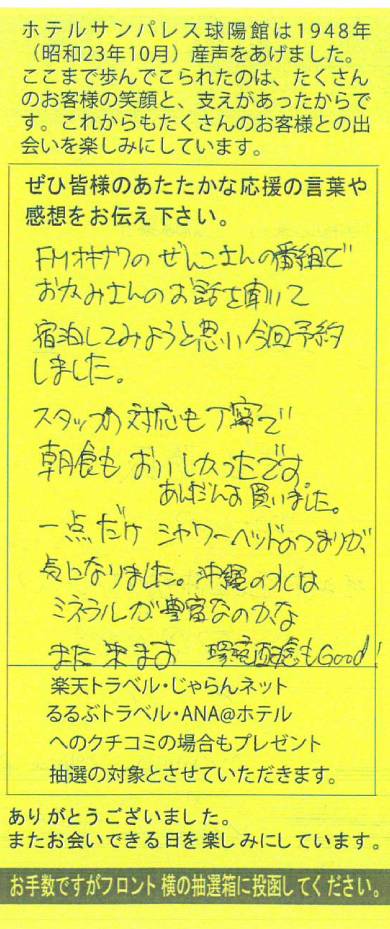 ホテルサンパレス球陽館は1948年
（昭和23年10月）産声をあげました。
ここまで歩んでこられたのは、たくさん
のお客様の笑顔と、支えがあったからで
す。これからもたくさんのお客様との出
会いを楽しみにしています。
ぜひ皆様のあたたかな応援の言葉や
感想をお伝え下さい。
FMオキナワの ぜんこさんの番組で
おかみさんのお話を聞いて
宿泊してみようと思い今回予約
しました。
スタッフの対応も丁寧で
朝食も おいしかったです
あんだんすぅ買いました。
一点だけ シャワーヘッドのつまりが、
気になりました。沖縄の水は
ミネラルが豊富なのかな
また来ます 環境配慮もGood!
楽天トラベル・じゃらんネット
るるぶトラベル・ANA@ホテル
へのクチコミの場合もプレゼント
抽選の対象とさせていただきます。
ありがとうございました。
またお会いできる日を楽しみにしています。
お手数ですがフロント横の抽選箱に投函してください。